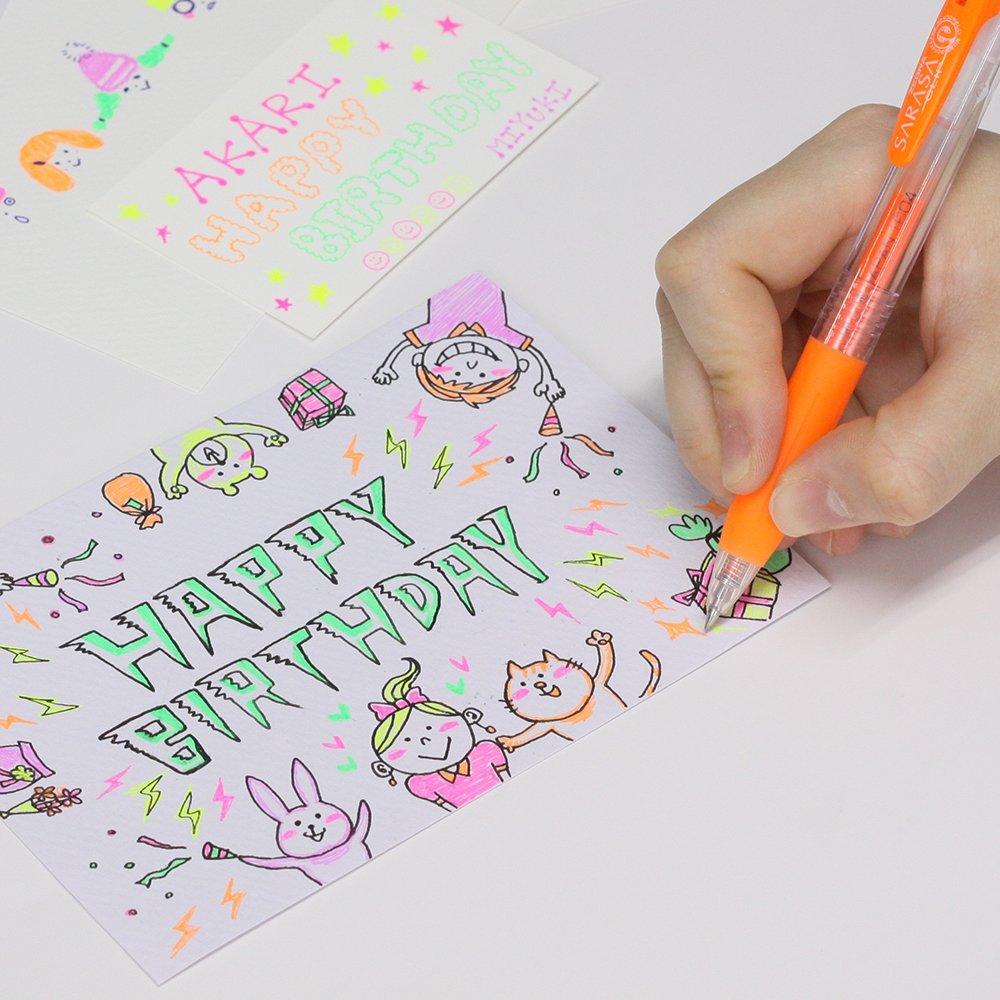 AKARI
HAPPY
BIRTHDAY
MIYUKI
HAPPY
BIRTHDAY
SARASA